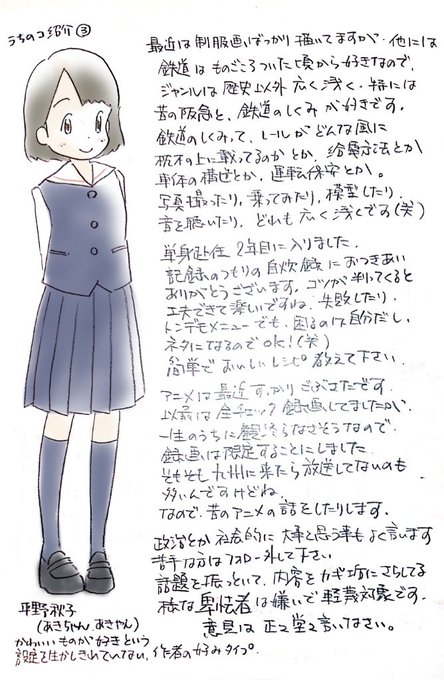 うちのコ紹介③
最近は制服画ばっかり描いてますが、他には
鉄道はものごころついた頃から好きなので、
ジャンルは歴史以外広く浅く。特には
昔の阪急と、鉄道のしくみが好きです。
鉄道のしくみって、レールがどんな風に
枕木の上に載ってるのかとか、給電方法とか
車体の構造とか、運転保安とか。
写真撮ったり、乗ってみたり、模型したり、
音を聴いたり、どれも広く浅くです(笑)
単身赴任2年目に入りました。
記録のつもりの自炊録におつきあい
ありがとうございます。コツが判ってくると
工夫できて楽しいですね。失敗したり、
トンデモメニューでも、困るのは自分だし、
ネタになるのでOK!(笑)
簡単でおいしいレシピ教えて下さい
アニメは最近すっかりごぶさたです。
以前は全チェック録画してましたが、
一生のうちに観終らなさそうなので、
録画は限定することにしました。
そもそも九州に来たら放送してないのも
多いんですけどね。
なので、昔のアニメの話をしたりします。
政治とか社会的に大事と思う事もよく言います
苦手な方はフォロー外して下さい
話題を振っといて、内容をカギ垢にさらしてる
様な卑怯者は嫌いで軽蔑対象です。
意見は正々堂々言いなさい。
平野秋子
(あきちゃん、あきやん)
かわいいものが好きという
設定を生かしきれていない、作者の好みタイプ。